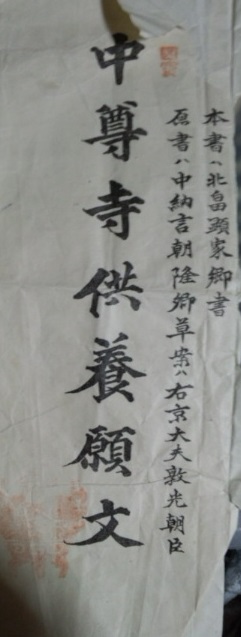 本書ハ北畠顕家卿書
原書ハ中納言朝隆卿草案ハ右京大夫敦光朝臣
中尊寺供養願文